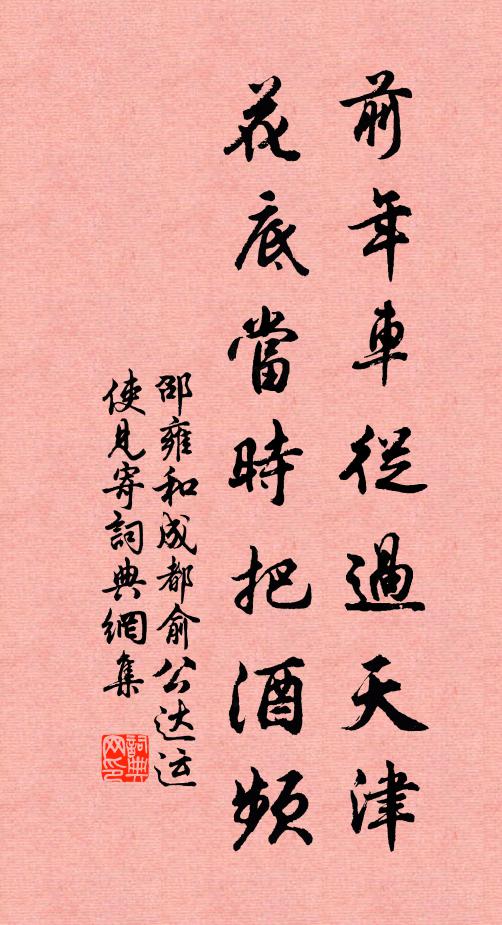 前年車從過天津
花底當時把酒頻
邵雍和成都俞公达运
使見寄詞典網集
詞典
网印